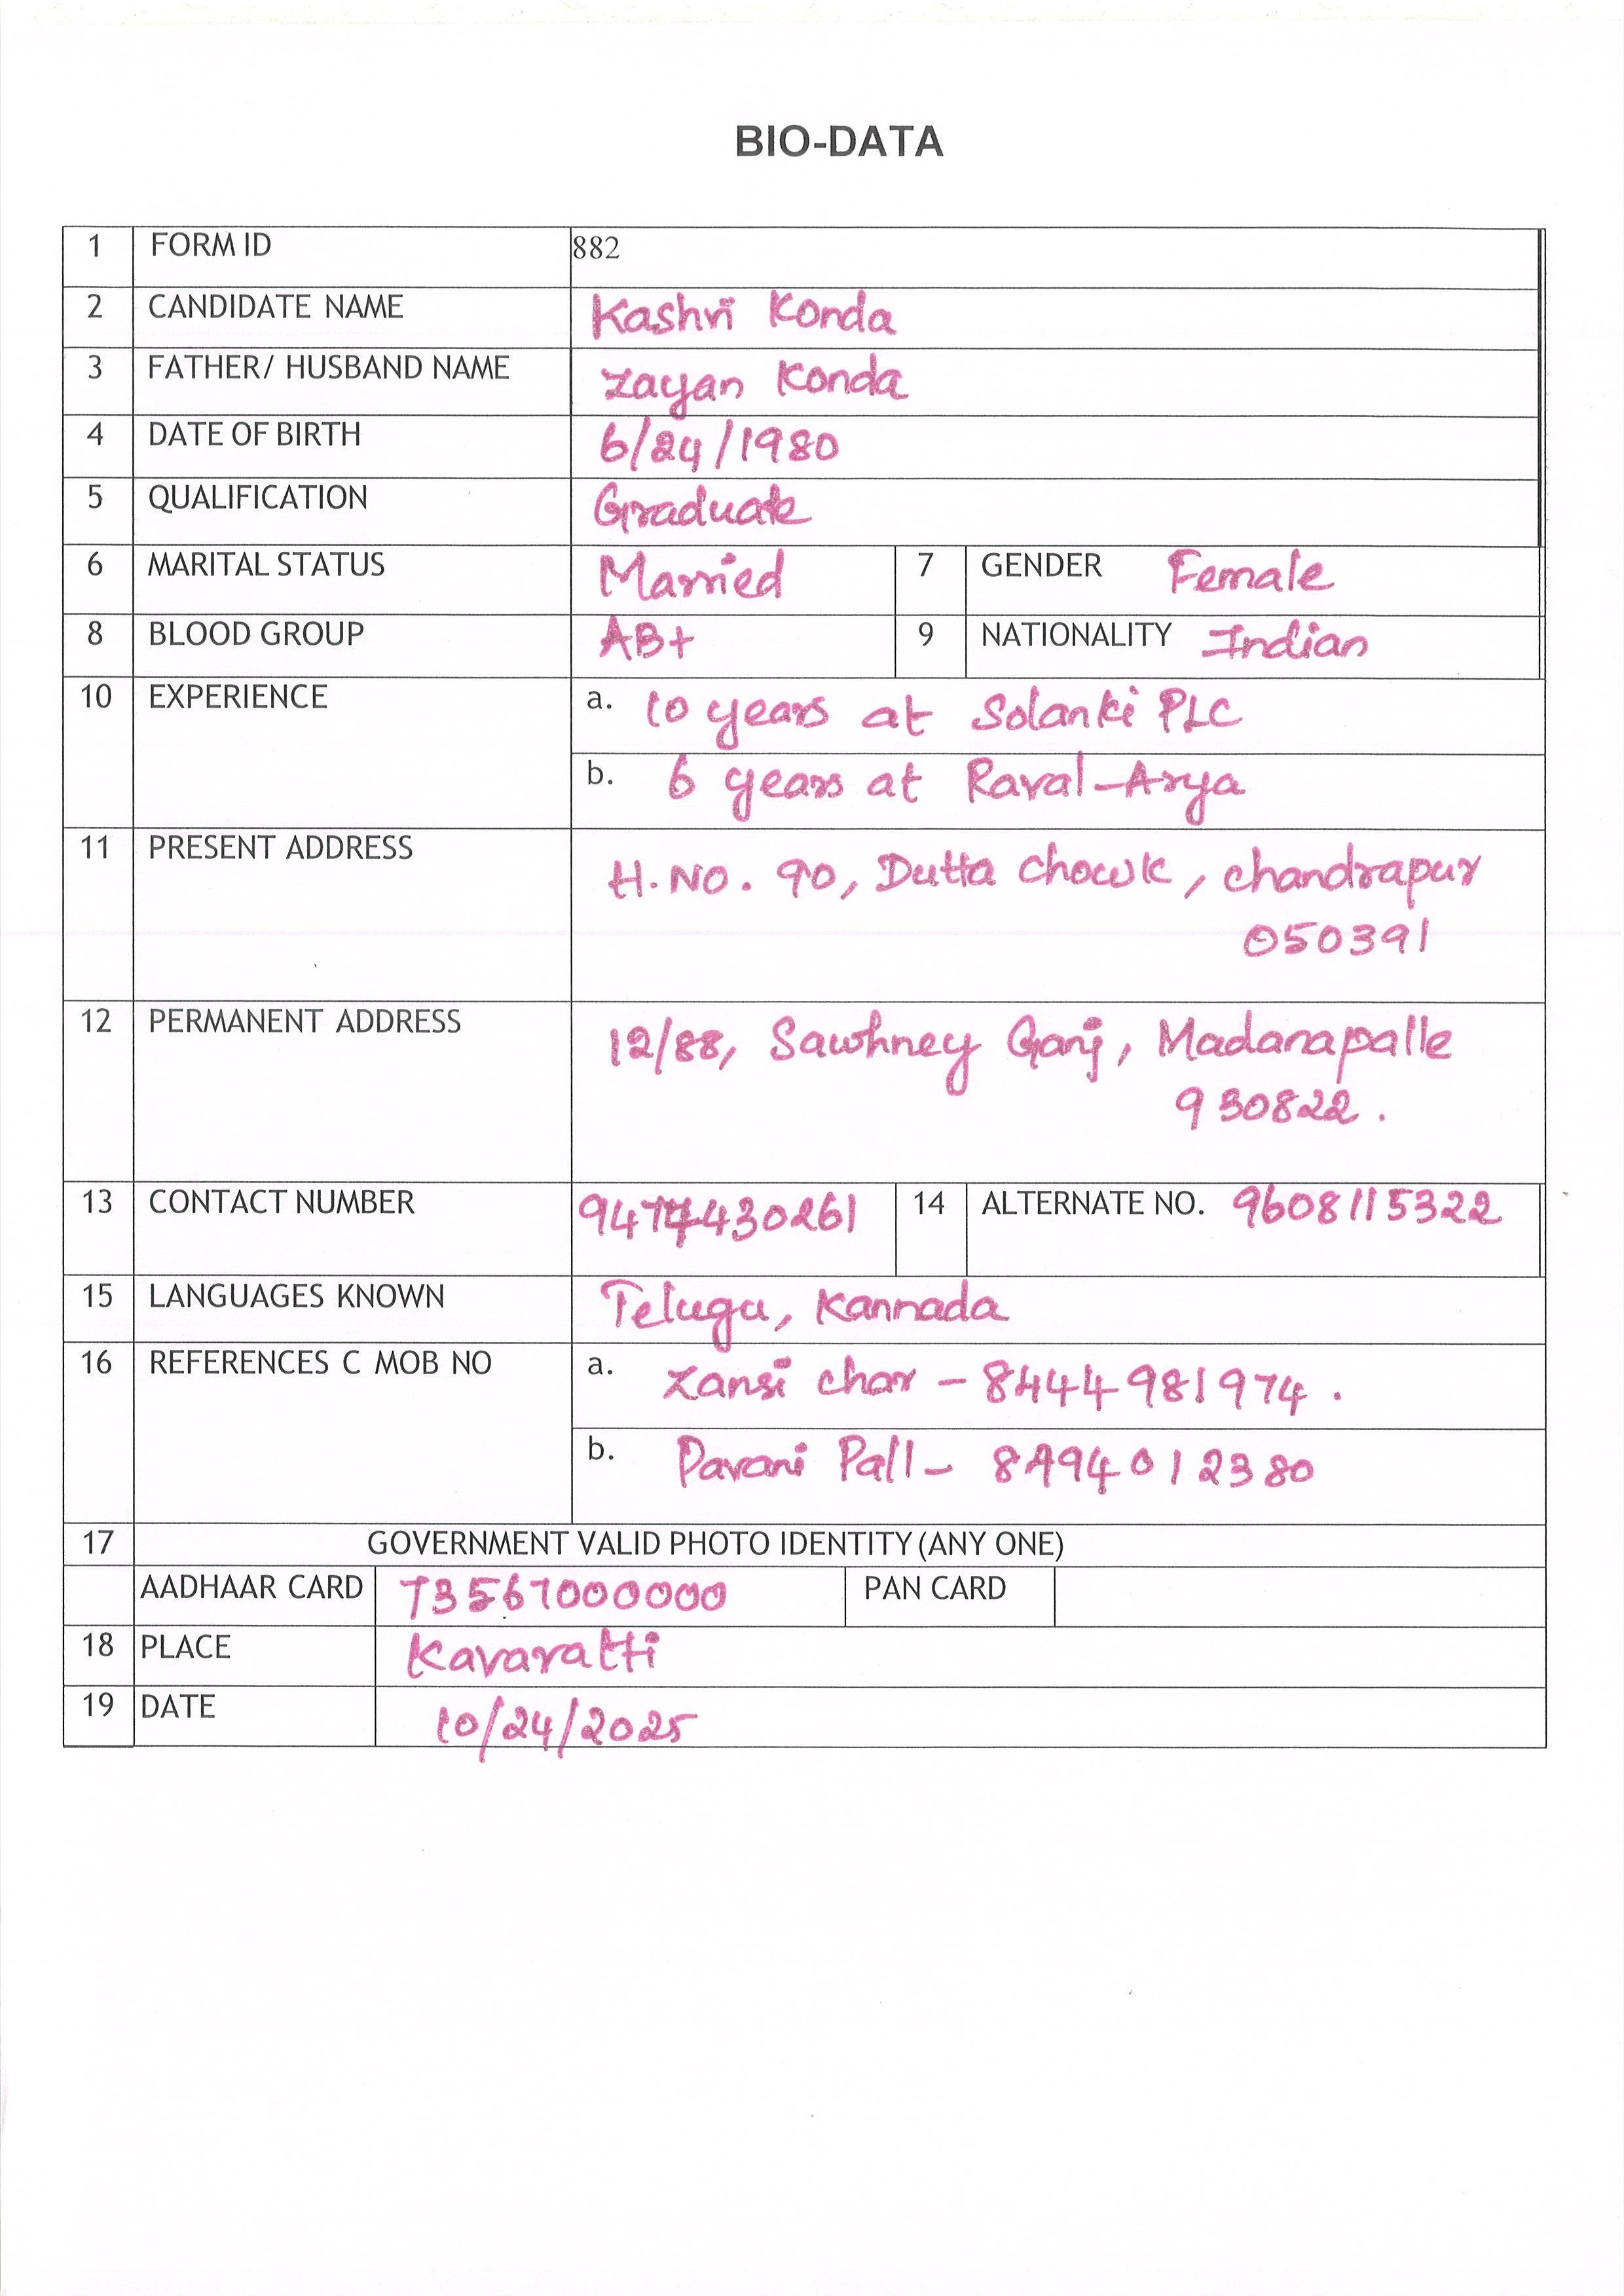 BIO-DATA
1 FORM ID 882
2 CANDIDATE NAME Kashvi Konda
3 FATHER/ HUSBAND NAME Zayan Konda
4 DATE OF BIRTH 6/24/1980
5 QUALIFICATION Graduate
6 MARITAL STATUS Married 7 GENDER Female
8 BLOOD GROUP AB+ 9 NATIONALITY Indian
10 EXPERIENCE a. 10 years at Solanki PLC
b. 6 years at Raval-Arya
11 PRESENT ADDRESS H.No. 90, Dutta Chowk, Chandrapur
050391
12 PERMANENT ADDRESS 12/88, Sawhney Ganj, Madanapalle
930822.
13 CONTACT NUMBER 9477430261 14 ALTERNATE NO. 9608115322
15 LANGUAGES KNOWN Telugu, Kannada
16 REFERENCES C MOB NO a. Zansi char - 8444981974.
b. Pavani Pall -
17 GOVERNMENT VALID PHOTO IDENTITY (ANY ONE)
AADHAAR CARD 73567000000 PAN CARD
18 PLACE Kavaratti
19 DATE 10/24/2025